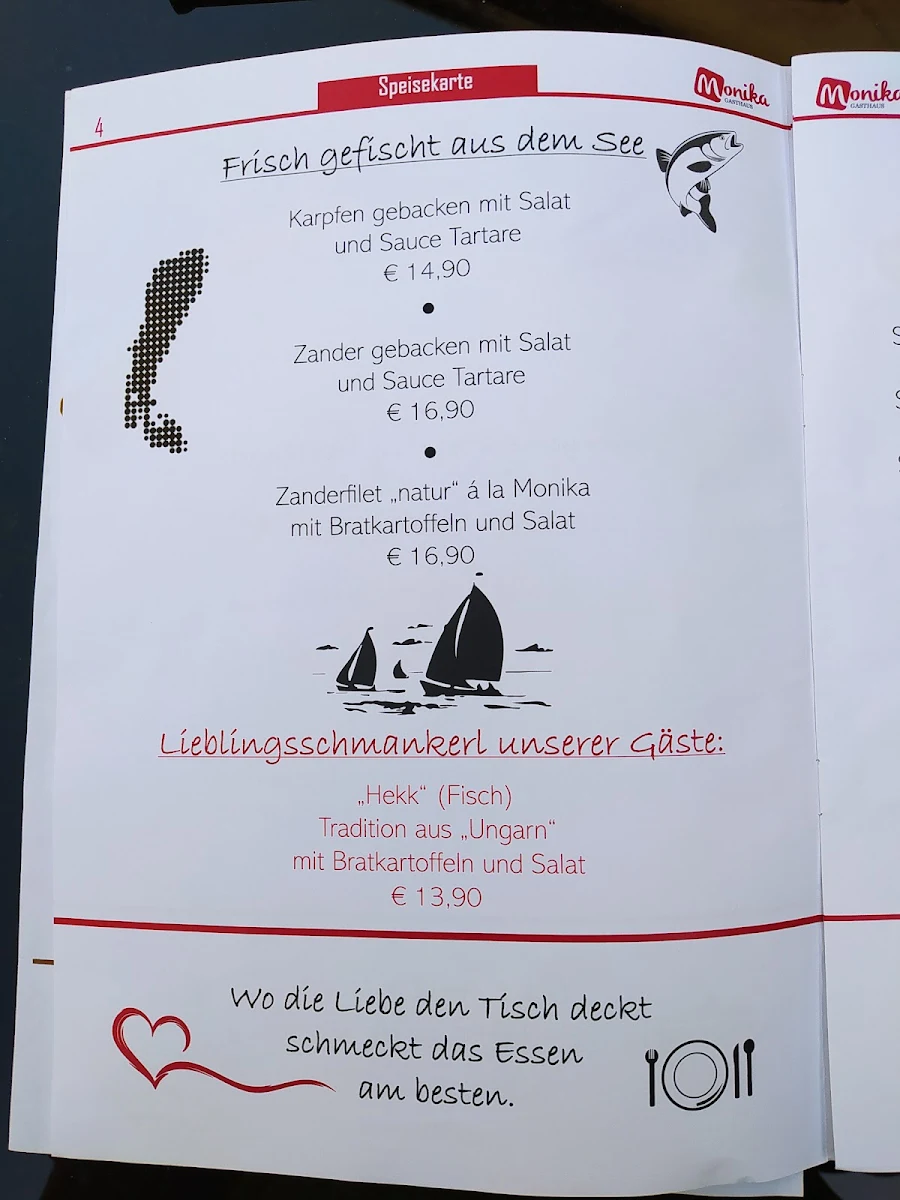 Speisekarte
Monika
GASTHAUS
Monika
GASTHAUS
4
Frisch gefischt aus dem See
Karpfen gebacken mit Salat
und Sauce Tartare
€ 14,90
Zander gebacken mit Salat
und Sauce Tartare
€ 16,90
Zanderfilet „natur“ á la Monika
mit Bratkartoffeln und Salat
€ 16,90
Lieblingsschmankerl unserer Gäste:
„Hekk“ (Fisch)
Tradition aus „Ungarn“
mit Bratkartoffeln und Salat
€ 13,90
Wo die Liebe den Tisch deckt
schmeckt das Essen
am besten.